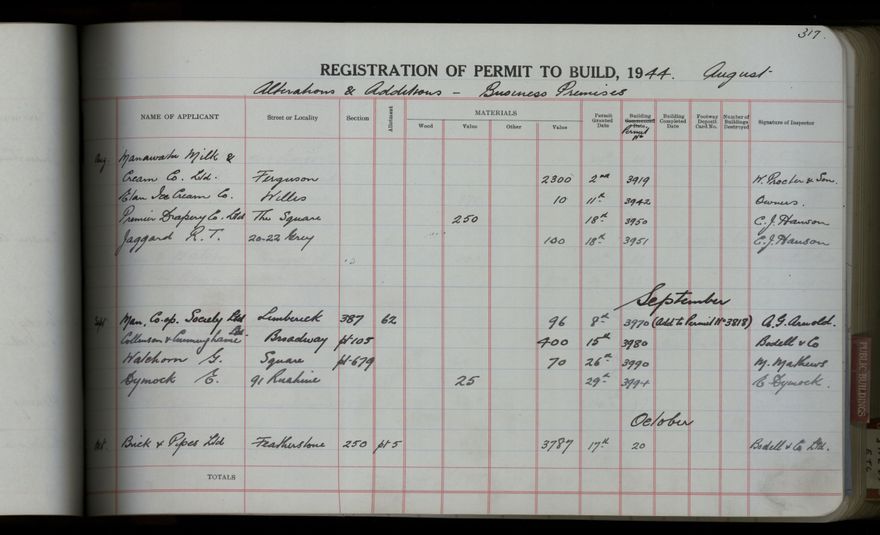 317.
REGISTRATION OF PERMIT TO BUILD, 1944. August
Alterations & Additions - Business Premises
NAME OF APPLICANT Street or Locality Section Allotment MATERIALS Wood Value Other Value Permit Granted Date Building Permit No Building Completed Date Footway Deposit Card No. Number of Buildings Destroyed Signature of Inspector
Aug. Manawatu Milk &
Cream Co. Ltd. Ferguson 2300 2nd 3919 W. Procter & Son.
Elan Ice Cream Co. Willis 10 11th 3942 Owners.
Premier Drapery Co. Ltd The Square 250 18th 3950 C.J. Hawson
Jaggard R.T. 20-22 Grey 100 18th 3951 C.J. Hauson
September
Sept Man. Co-op. Society Ltd Limberick 387 62 96 8th 3970 (Add to Permit No 3818) A.G. Arnold.
Collinson & Cunninghame Ltd. Broadway pt 105 400 15th 3980 Bodell & Co
Watchorn G. Square pt 679 70 26th 3990 M. Mathews
Dymock E. 91 Ruahine 25 29th 3994 E Dymock.
October
Oct. Brick & Pipes Ltd Featherstone 250 pt 5 3787 17th 20 Bodell & Co Ltd.
TOTALS
PUBLIC BUILDINGS
ETC